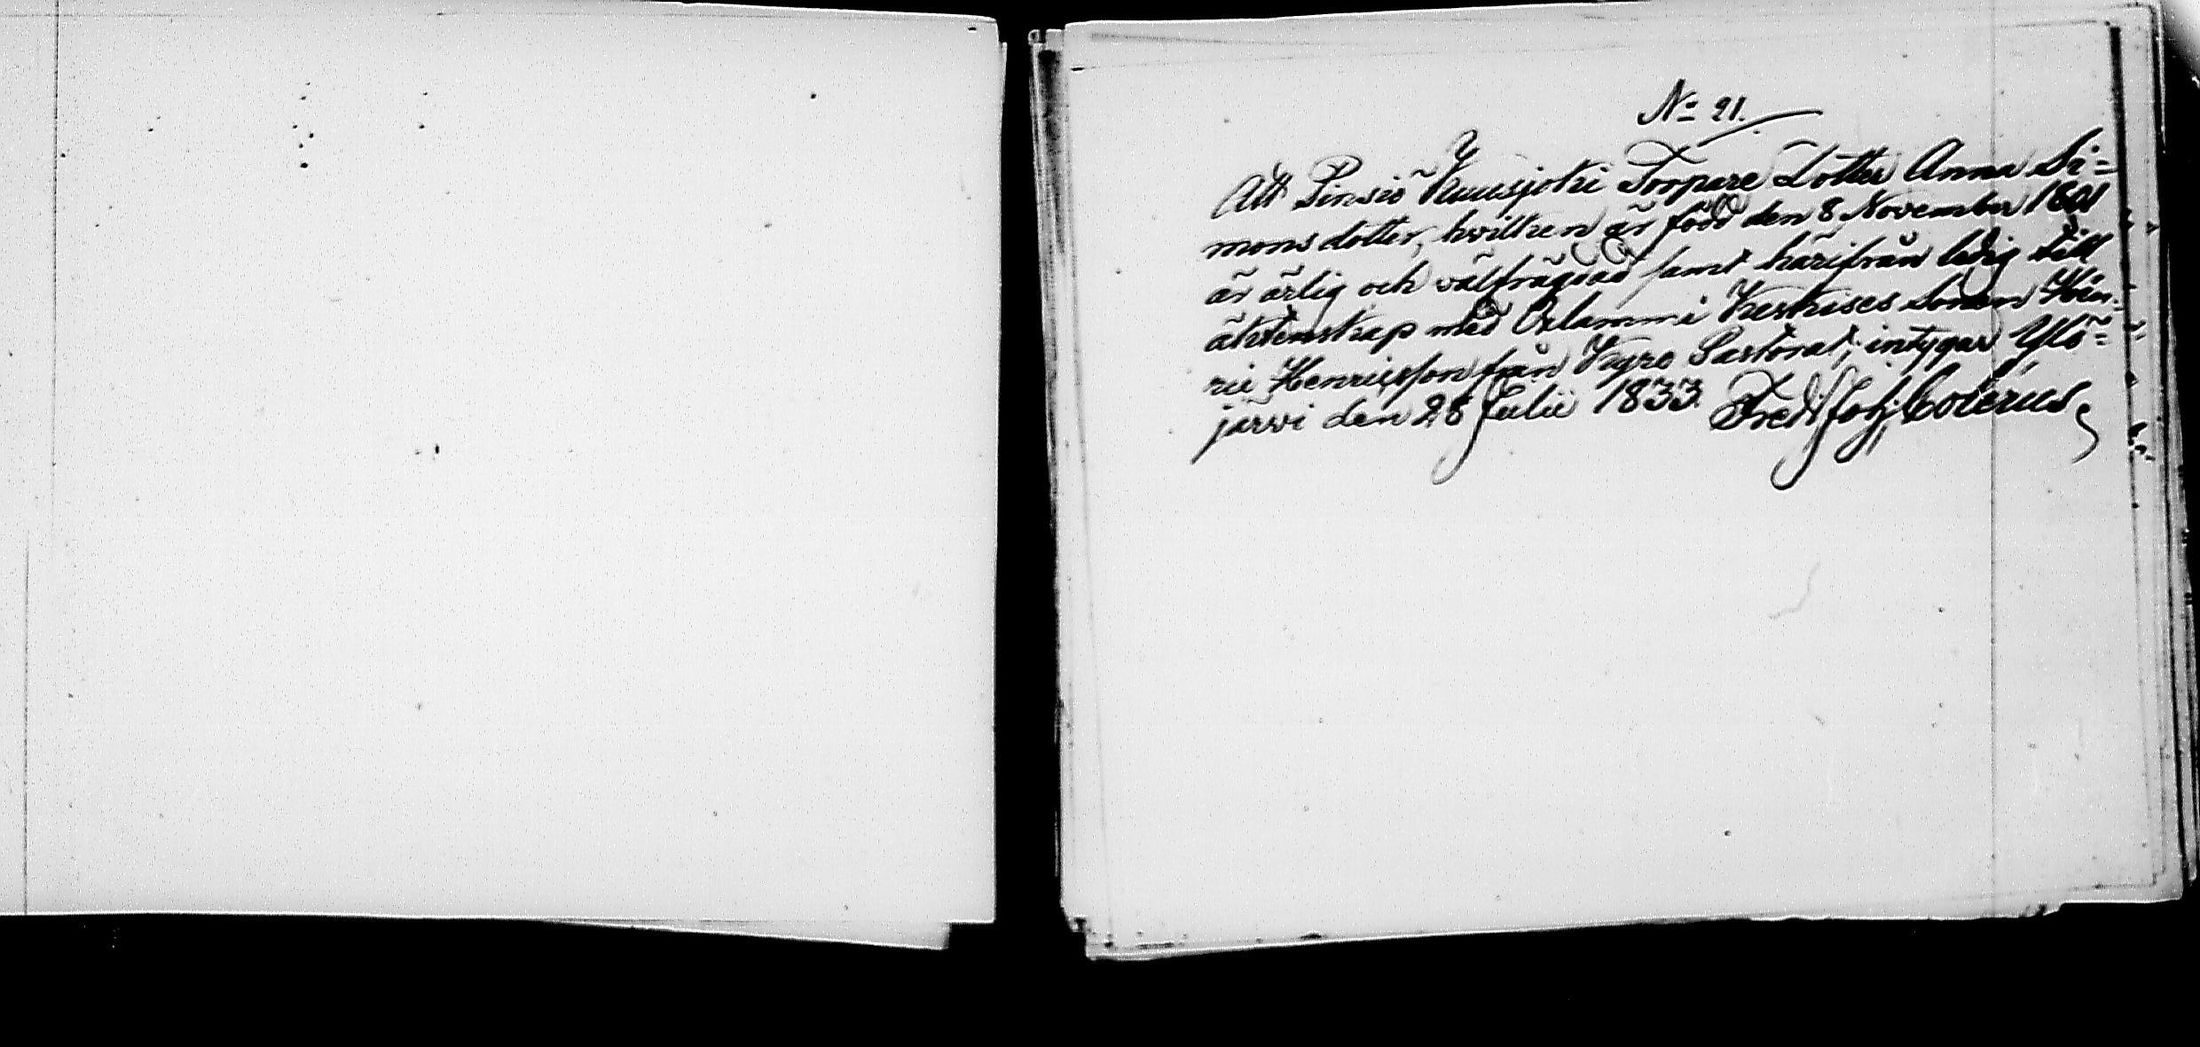 No 21.
Att Pinsiö Kuusjoki Torpare Dotter Anna Si=
mons dotter, hvilken är född den 8 November 1801
är ärlig och välfrägdad samt härifrån ledig till
äktenskap med Oxlammi Keskises Sonen Hen=
ric Henricsson från Kyro Pastorat; intygar Ylö=
järvi den 28 Julii 1833. Fred: Joh: Colérus